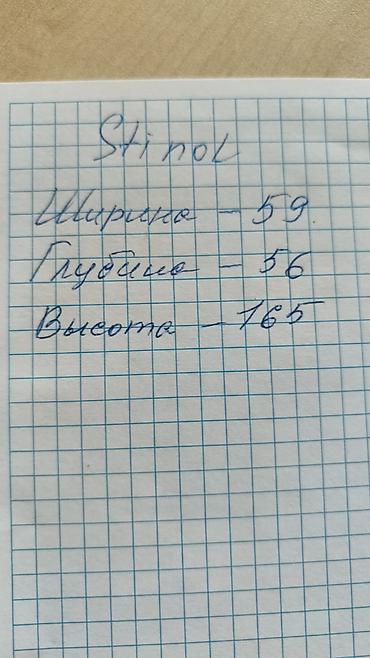 Stinol
Ширина - 59.
Глубина - 56
Высота - 165